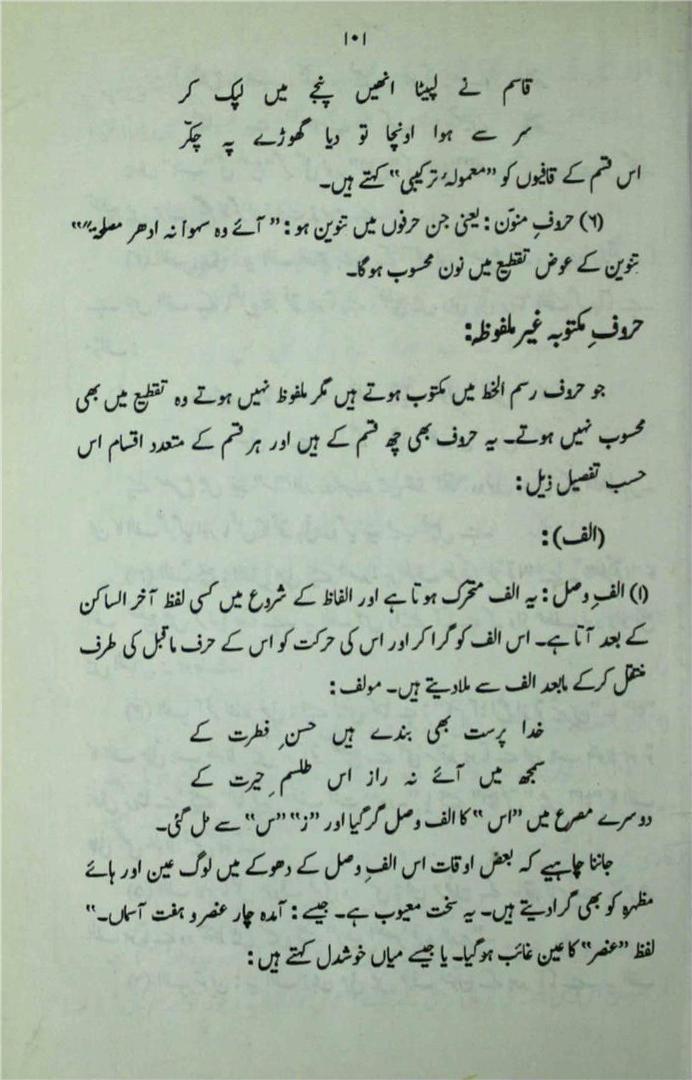 ۱۰۱
قاسم نے لپیٹا انھیں پنجے میں لپک کر
سر سے ہوا اونچا تو دیا گھوڑے پہ چکّر
اس قسم کے قافیوں کو ”معمولۂ ترکیبی“ کہتے ہیں۔
(۶) حروفِ منوّن: یعنی جن حرفوں میں تنوین ہو: ”آئے وہ سہواً نہ ادھر مصلحۃً“
تنوین کے عوض تقطیع میں نون محسوب ہوگا۔
حروفِ مکتوبہ غیر ملفوظہ:
جو حروف رسم الخط میں مکتوب ہوتے ہیں مگر ملفوظ نہیں ہوتے وہ تقطیع میں بھی
محسوب نہیں ہوتے۔ یہ حروف بھی چھ قسم کے ہیں اور ہر قسم کے متعدد اقسام اس
حسب تفصیل ذیل:
(الف):
(۱) الفِ وصل: یہ الف متحرک ہوتا ہے اور الفاظ کے شروع میں کسی لفظ آخر الساکن
کے بعد آتا ہے۔ اس الف کو گرا کر اور اس کی حرکت کو اس کے حرف ماقبل کی طرف
منتقل کرکے مابعد الف سے ملادیتے ہیں۔ مولف:
خدا پرست بھی بندے ہیں حسنِ فطرت کے
سمجھ میں آئے نہ راز اس طلسمِ حیرت کے
دوسرے مصرع میں ”اس“ کا الف وصل گر گیا اور ”ز“ ”س“ سے مل گئی۔
جاننا چاہیے کہ بعض اوقات اس الفِ وصل کے دھوکے میں لوگ عین اور ہائے
مظہرہ کو بھی گرادیتے ہیں۔ یہ سخت معیوب ہے۔ جیسے: آمدہ چار عنصر و ہفت آسماں۔“
لفظ ”عنصر“ کا عین غائب ہوگیا۔ یا جیسے میاں خوشدل کہتے ہیں: